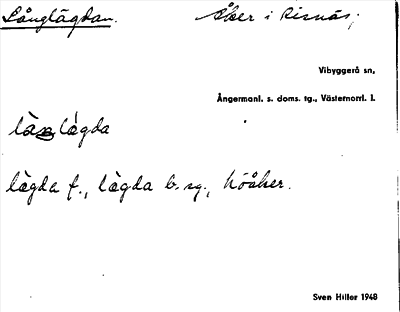 Långlägdan. Åker i Risnäs;
Vibyggerå sn,
Ångermanl. s. doms. tg., Västernorrl. l.
lägda
lägda f., lägda b. sg., höåker.
Sven Hiller 1948